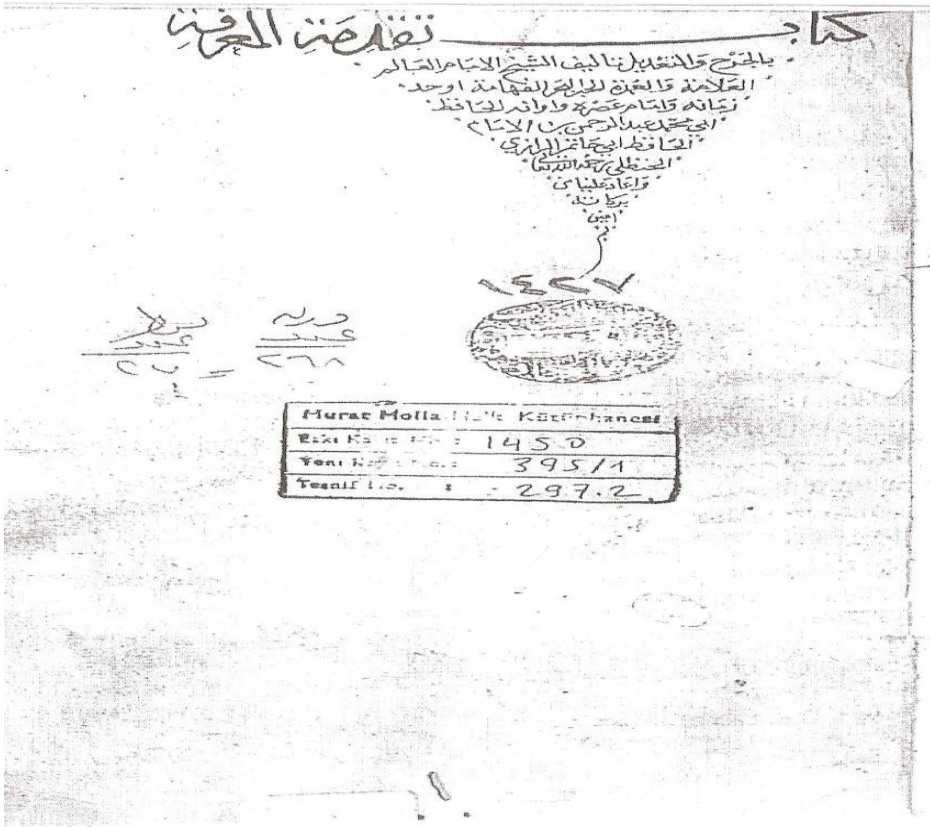 كتاب تقدمة المعرفة
بالجرح والتعديل تاليف الشيخ الامام العالم
العلامة والعمدة الفهامة اوحد
زمانه وامام عصره واوانه الحافظ
ابي محمد عبد الرحمن بن الامام
الحافظ ابي حاتم الرازي
الحنظلي رحمه الله تعالى
واعاد علينا من
بركاته
امين
١٤٢٧
ورقه
عدد
٢٦٨
سطر
عدد
٢٧
Murat Molla Halk Kütüphanesi
Eski Kayıt No. : 1450
Yeni Kayıt No. : 395/1
Tasnif No. : 297.2
١